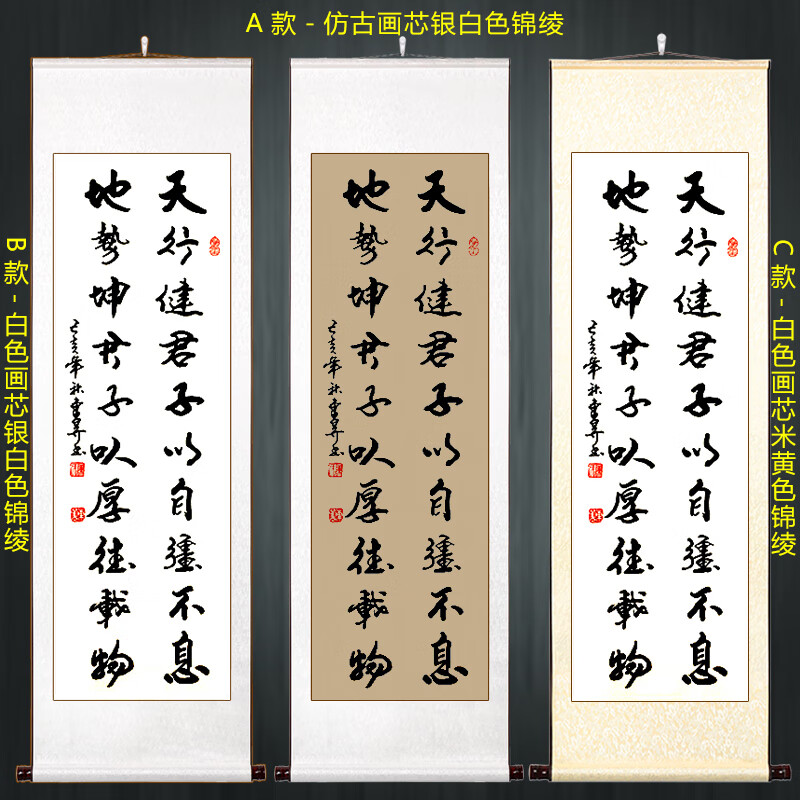 A 款 - 仿古画芯银白色锦绫
B 款 - 白色画芯银白色锦绫
天行健君子以自强不息
地势坤君子以厚德载物
己亥年秋
天行健君子以自强不息
地势坤君子以厚德载物
己亥年秋
天行健君子以自强不息
地势坤君子以厚德载物
己亥年秋
C 款 - 白色画芯米黄色锦绫